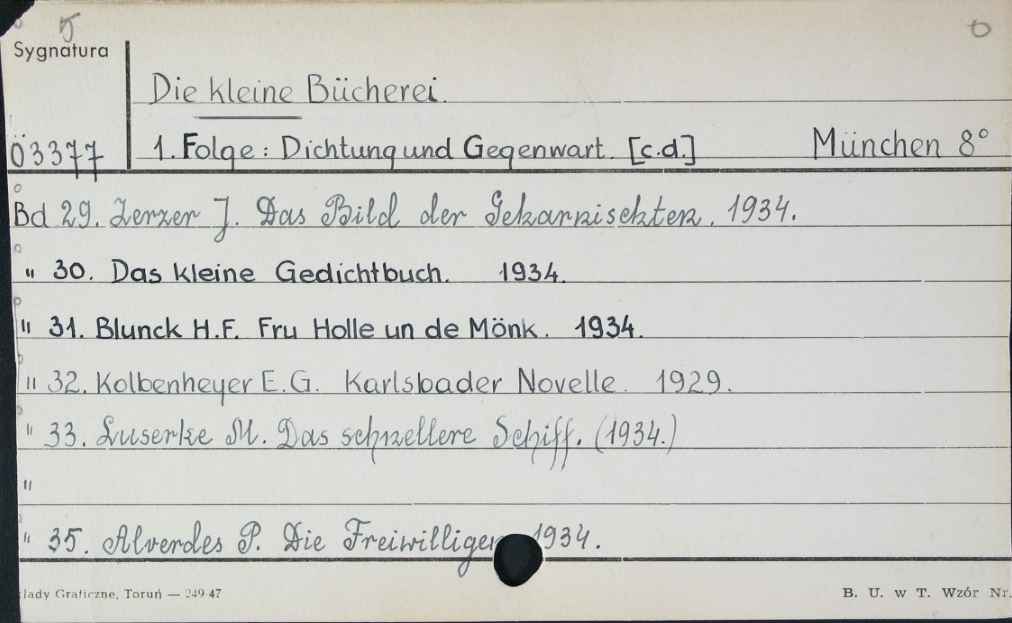 Sygnatura
Die kleine Bücherei.
Ö3377
1. Folge: Dichtung und Gegenwart. [c.d.] München 8°
Bd 29. Zerzer J. Das Bild der 1934.
" 30. Das kleine Gedichtbuch. 1934.
" 31. Blunck H.F. Fru Holle un de Mönk. 1934.
" 32. Kolbenheyer E.G. Karlsbader Novelle. 1929.
" 33. Luserke M. Das schnellere Schiff. (1934.)
"
" 35. Alverdes P. Die 1934.
Graficzne, Toruń — 249-47
B. U. w T. Wzór Nr.